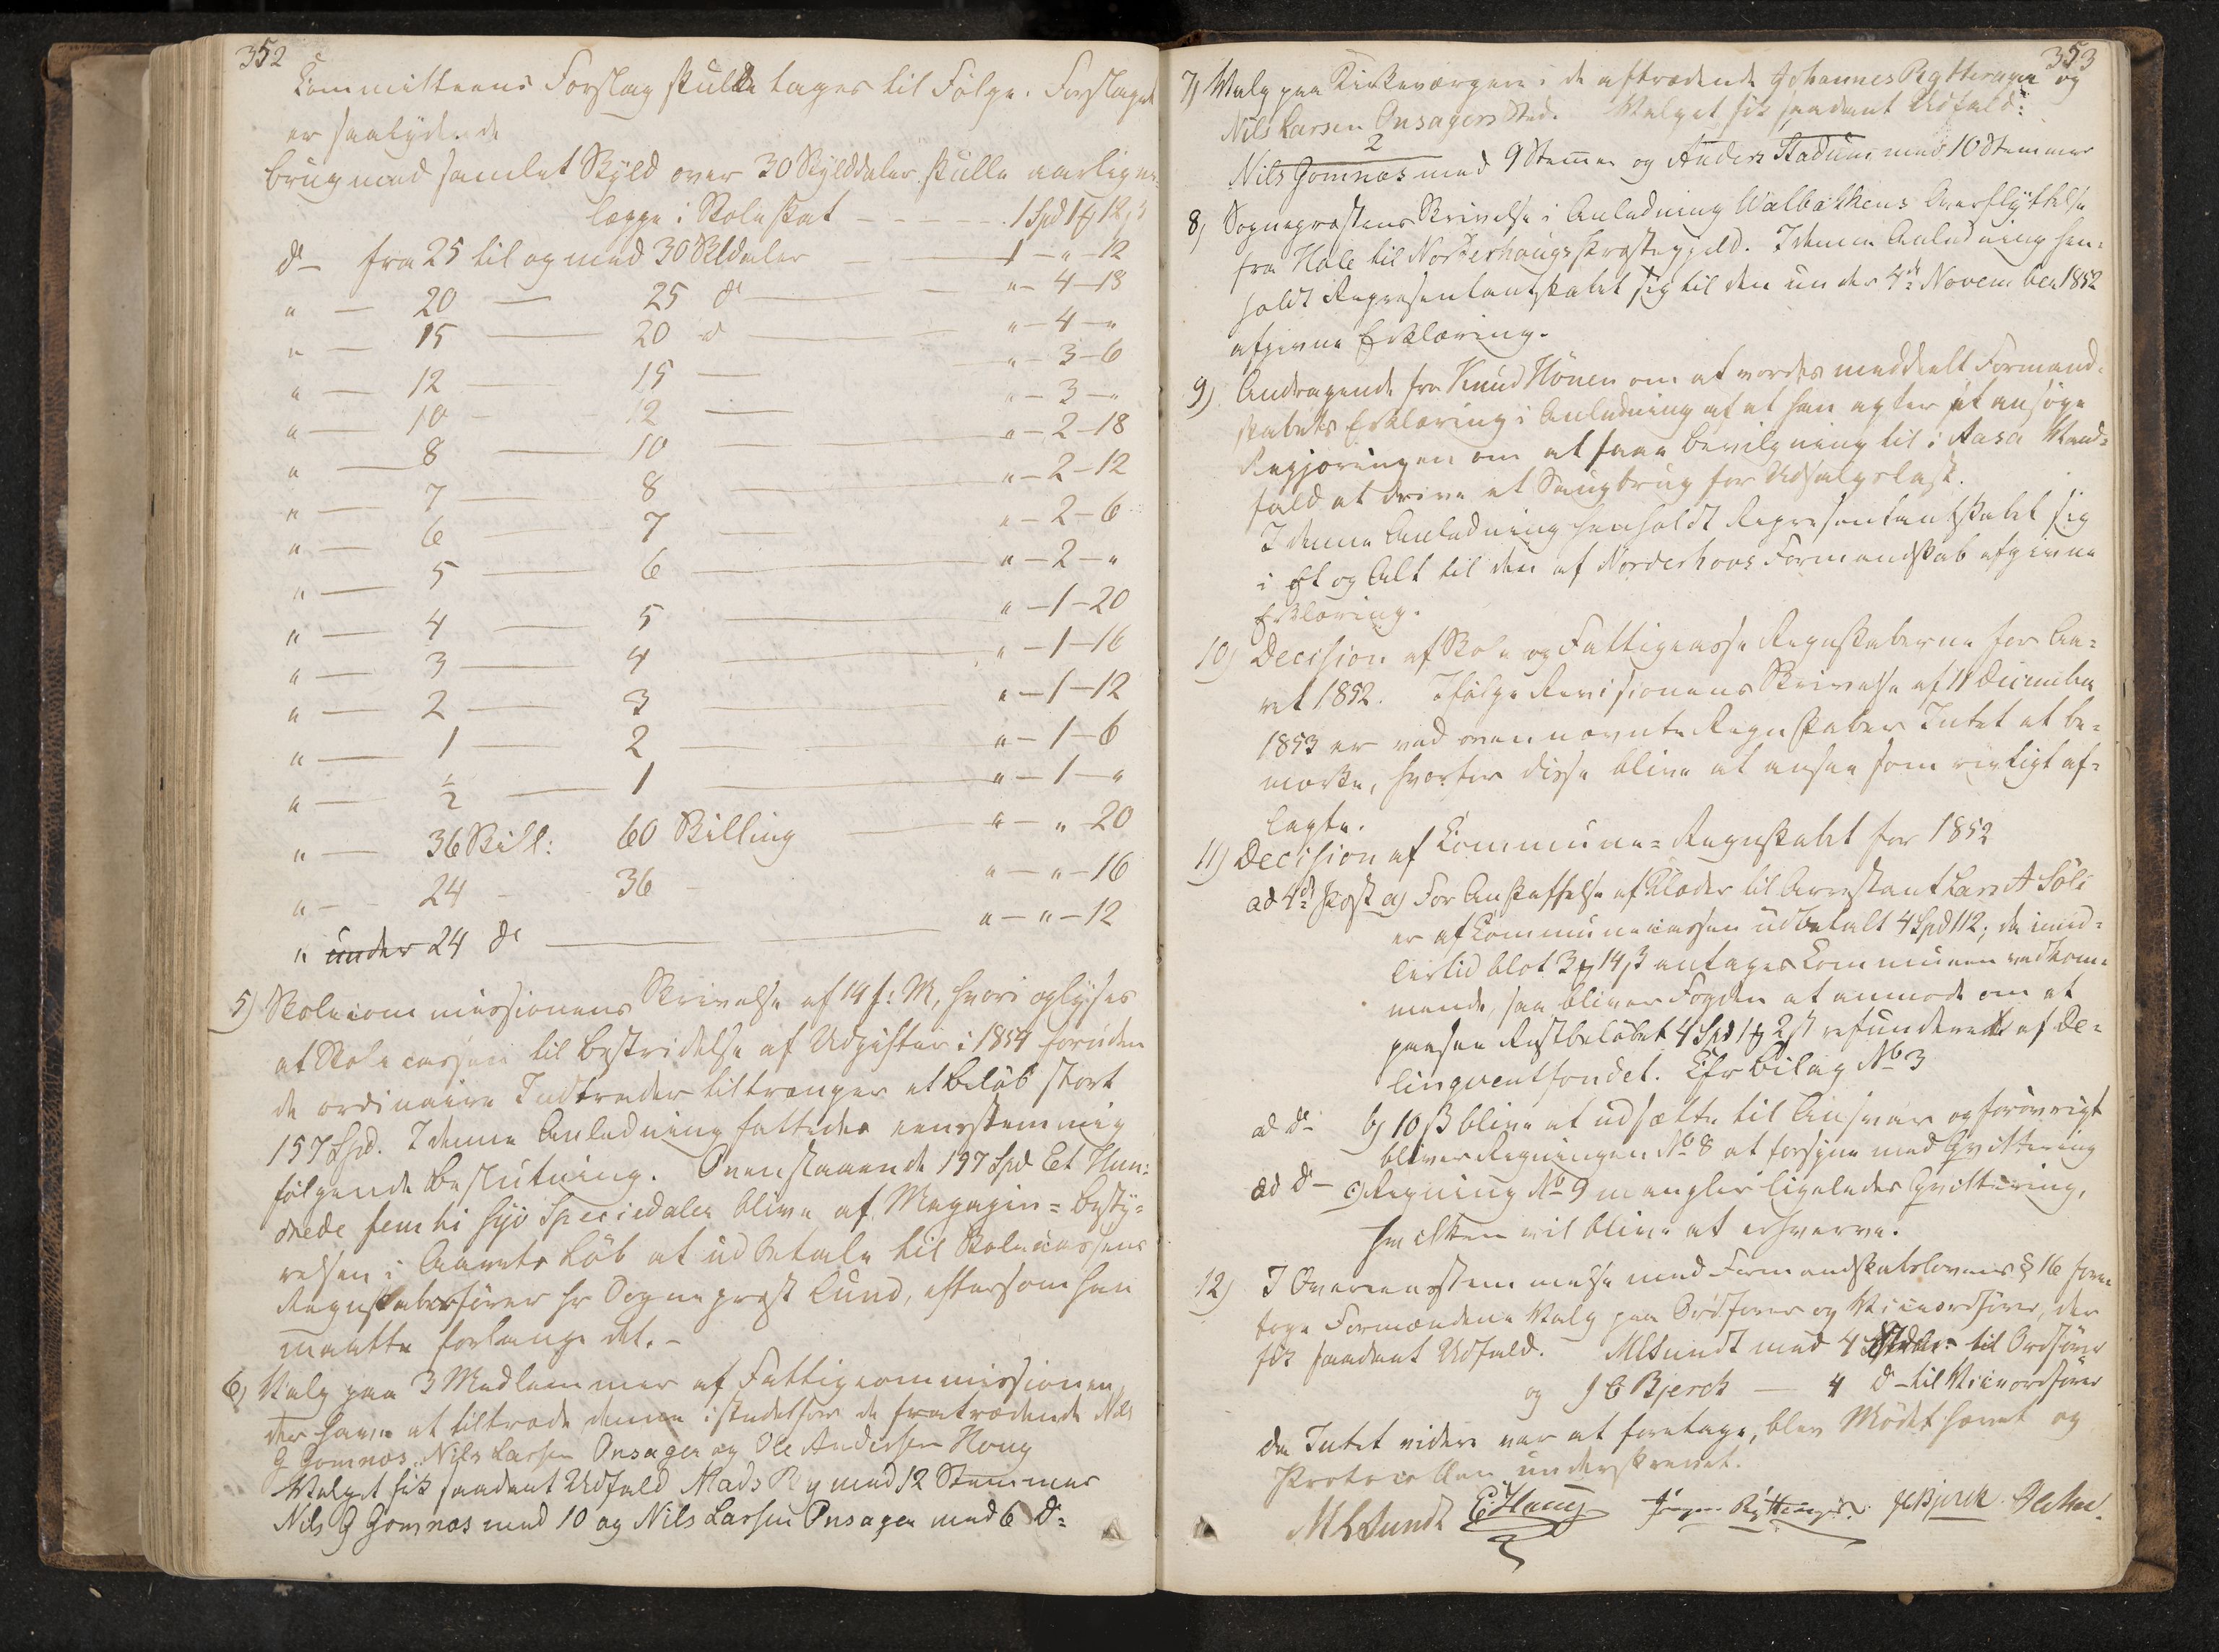 352
Committeens Forslag skulde tages til Følge. Forslaget
er saalydende
brug med samlet Skyld over 30 Skylddaler skulle aarligen
lægge i Skoleskat — — 1 Spd 1 ƒ 18 ß
do — fra 25 til og med 30 Skldaler — 1 — " — 12
" — 20 — 25 do — " — 4 — 18
" — 15 — 20 do — " — 4 — "
" — 12 — 15 — " — 3 — 6
" — 10 — 12 — " — 3 — "
" — 8 — 10 — " — 2 — 18
" — 7 — 8 — " — 2 — 12
" — 6 — 7 — " — 2 — 6
" — 5 — 6 — " — 2 — "
" — 4 — 5 — " — 1 — 20
" — 3 — 4 — " — 1 — 16
" — 2 — 3 — " — 1 — 12
" — 1 — 2 — " — 1 — 6
" — ½ — 1 — " — 1 — "
" — 36 Skill: 60 Skilling — " — " 20
" — 24 - 36 - " — " — 16
" under 24 do — " — " — 12
5) Skolecommissionens Skrivelse af 14 f: M, hvori oplyses
at Skolecassen til Bestridelse af Udgifter i 1854 foruden
de ordinaire Indtræder tiltrænger et beløb stort
157 Spd. I denne Anledning fattedes eensstemmig
følgende Beslutning. Ovenstaaende 157 Spd Et Hun-
drede femti syv Speciedaler blive af Magazin-Besty-
relsen i Aarets Løb at udbetale til Skolecassens
Regnskabsfører Hr Sogneprest Lund, eftersom han
maatte forlange det. –
6) Valg paa 3 Medlemmer af Fattigcommissionen
der have at tiltræde denne istedetfor de fratrædende Nils
G Gomnæs, Nils Larsen Onsager og Ole Andersen Houg
Valget fik saadant Udfald Mads Ry med 12 Stemmer
Nils G Gomnæs med 10 og Nils Larsen Onsager med 6 do
353
7) Valg paa Kirkeværgere i de aftrædende Johannes Rytterager og
Nils Larsen Onsagers Sted. Valget fik saadant Udfald:
2
Nils Gomnæs med 9 Stemmer og Anders Stadum med 10 Stemmer
8) Sogneprestens Skrivelse i Anledning Walbækkens Overflyttelse
fra Hole til Norderhougs Præstegjeld. I denne Anledning hen-
holdt Repræsentantskabet sig til den under 4de November 1852
afgivne Erklæring.
9) Andragende fra Knud Hønen om at vorde meddeelt Formand-
skabets Erklæring i Anledning af at han agter at ansøge
Regjeringen om at faae Bevilgning til i Aasa Vand-
fald at drive et Saugbrug for Udsalgslast.
I denne Anledning henholdt Repræsentantskabet sig
i Et og Alt til den af Norderhovs Formandskab afgivne
Erklæring.
10) Decision af Skole og Fattigcasse Regnskaberne for Aa-
ret 1852. Ifølge Revisionens Skrivelse af 11 December
1853 er ved ovennævnte Regnskaber Intet at be-
mærke, hvorfor disse blive at ansee som rigtigt af-
lagte.
11) Decision af Commune-Regnskabet for 1852
ad 4de Post a) For Anskaffelse af Klæder til Arrestant Lars A Søli
er af Communecassen udbetalt 4 Spd 112; da imid-
lertid blot 3 ƒ 14 ß antages Communen vedkom-
mende, saa bliver Fogden at anmode om at
paasee Restbeløbet 4 Spd 1 ƒ 2 ß refunderet af De-
linqventfondet. Cfr Bilag No 3
ad do b) 10 ß blive at udsætte til Ansvar og forøvrigt
bliver Regningen No 8 at forsyne med Qvittering
ad do — c) Regning No 9 mangler ligeledes Qvittering,
hvilken vil blive at erhverve.
12) I Overeensstemmelse med Formandskabslovens § 16 fore-
toge Formændene Valg paa Ordfører og Viceordfører, der
fik saadant Udfald. M Lsundt med 4 til Ordfører
og J C Bjerck — 4 do — til Viceordfører
da Intet videre var at foretage, blev Mødet hævet og
Protocollen underskrevet.
M Lsundt E. Houg Jørgen Rytterager. JC Bjerck Ole And.